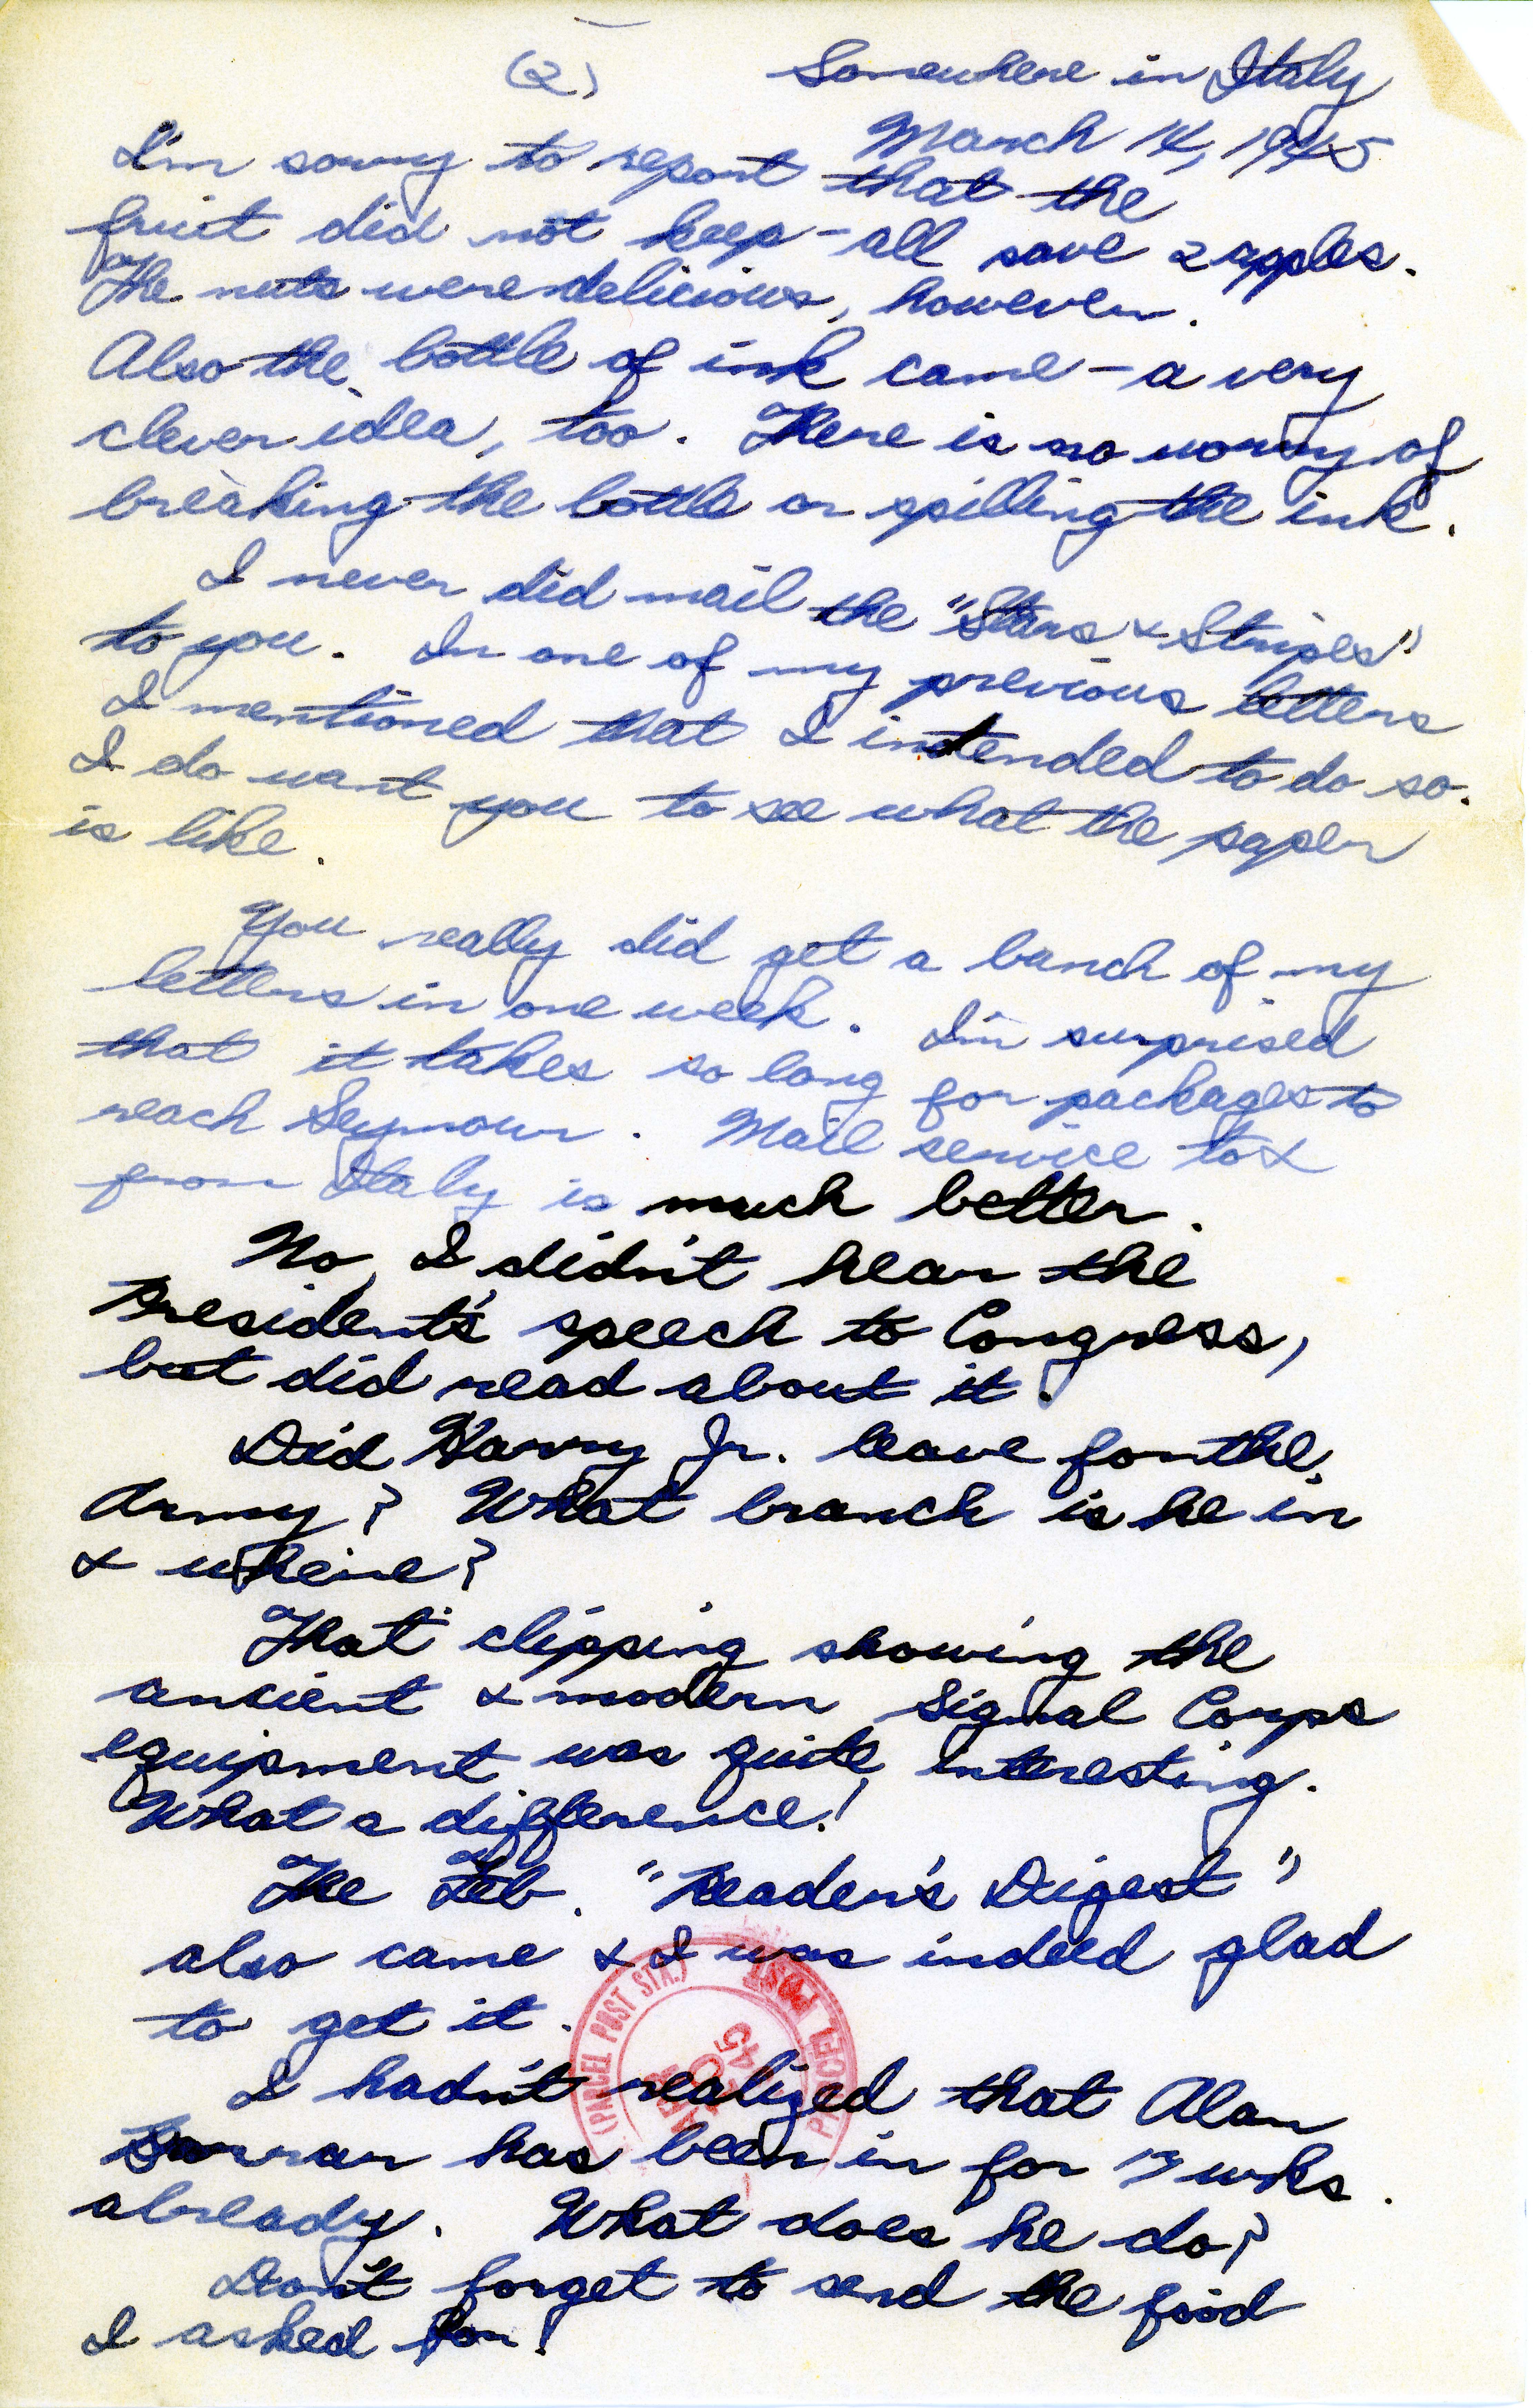 (2) Somewhere in Italy
March 14, 1945
I'm sorry to report that the
fruit did not keep - all save 2 apples.
The nuts were delicious, however.
Also the bottle of ink came - a very
clever idea, too. There is no worry of
breaking the bottle or spilling the ink.
I never did mail the "Stars & Stripes"
to you. In one of my previous letters
I mentioned that I intended to do so.
I do want you to see what the paper
is like.
You really did get a bunch of my
letters in one week. I'm surprised
that it takes so long for packages to
reach Seymour. Mail service to &
from Italy is much better.
No, I didn't hear the
President's speech to Congress,
but did read about it.
Did Harry Jr. leave for the
Army? What branch is he in
& where?
That clipping showing the
ancient & modern Signal Corps
equipment was quite interesting.
What a difference!
The Feb. "Reader's Digest"
also came & I was indeed glad
to get it.
(PARCEL POST STA.)
APR
10
45
I hadn't realized that Alan
has been in for 13 wks.
already. What does he do?
Don't forget to send the food
I asked for!